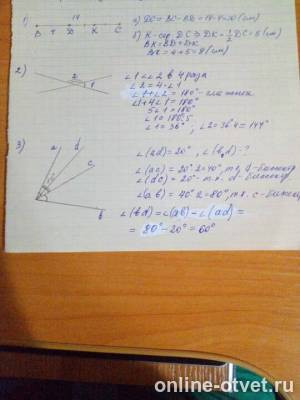 1) 14 а) DC = BC - BD = 14-4=10 (см)
B 4 D K C б) K - сер. DC ⇒ DK = 1/2 DC = 5 (см)
BK = BD + DK
BK = 4+5 = 9 (см)
2) ∠1 < ∠2 в 4 раза
2 1 ∠2 = 4·∠1
∠1 + ∠2 = 180° - смежные
∠1 + 4∠1 = 180°
5∠1 = 180°
∠1 = 180:5
∠1 = 36°, ∠2 = 36·4 = 144°
3) a d c b 20° ∠(ad) = 20°, ∠(b,d) - ?
∠(ac) = 20°·2 = 40°, т.к. d - биссек.
∠(dc) = 20° - т.к. d - биссек.
∠(ab) = 40°·2 = 80°, т.к. c - биссек.
∠(bd) = ∠(ab) - ∠(ad) =
= 80° - 20° = 60°
online-otvet.ru